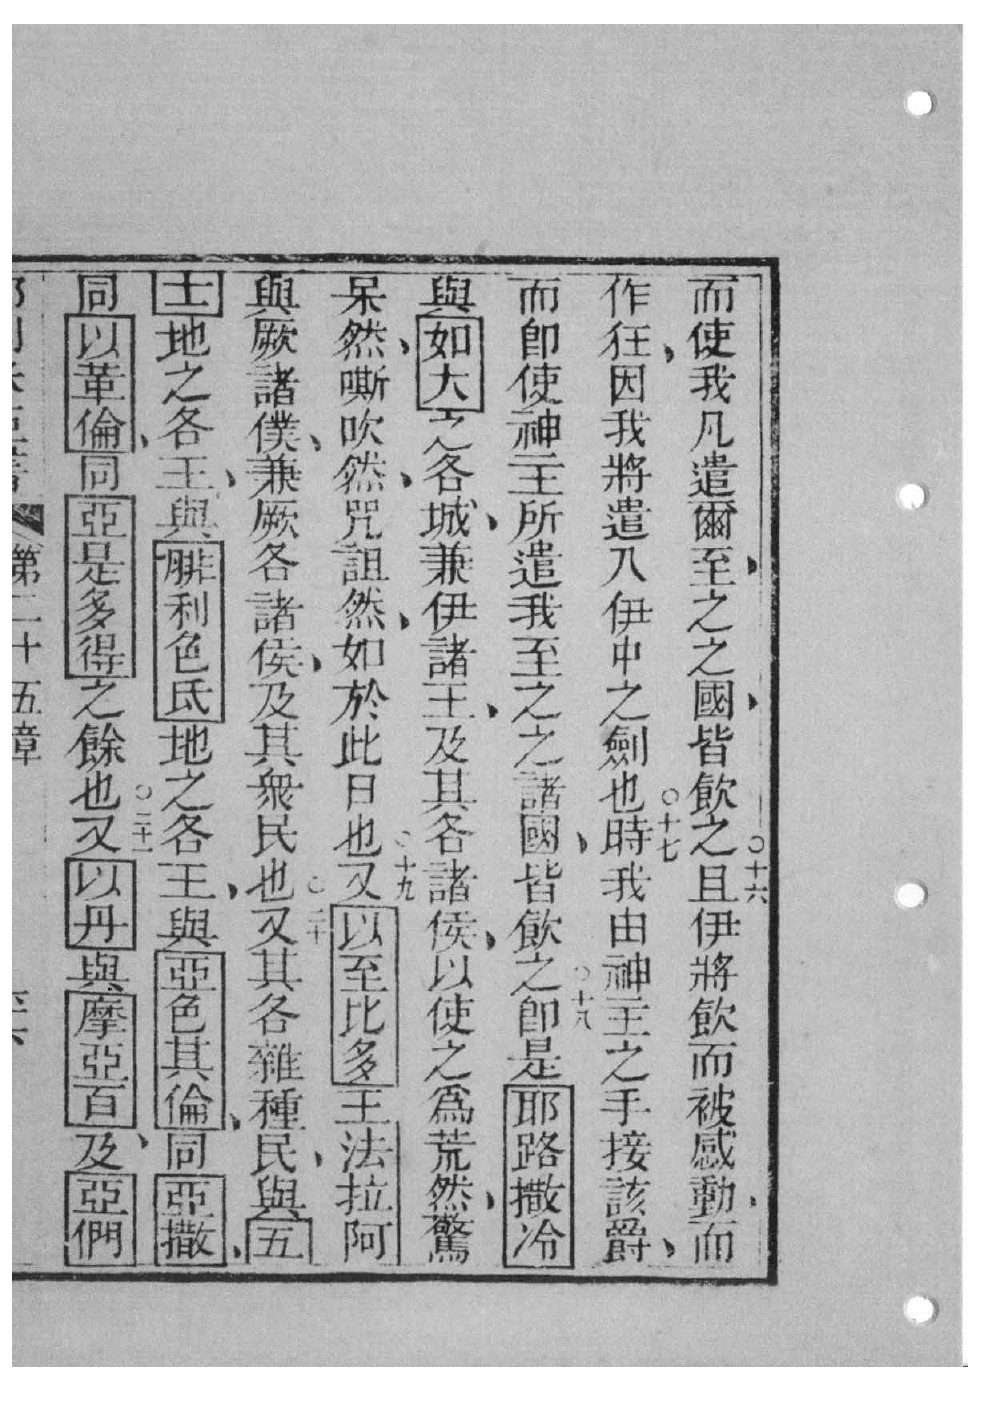 而使我凡遣爾至、之之國、皆飲之○十六且伊將飲而被感動、而
作狂、因我將遣入伊中之劍也○十七時我由神主之手接該爵、
而卽使神主所遣我至之之諸國、皆飲之○十八卽是耶路撒冷
與如大之各城、兼伊諸王、及其各諸侯、以使之爲荒然、驚
呆然、嘶吹然、咒詛然、如於此日也○十九又以至比多王法拉阿
與厥諸僕、兼厥各諸侯、及其衆民也○二十又其各雜種民、與五
士地之各王、與腓利色氐地之各王、與亞色其倫、同亞撒、
同以革倫、同亞是多得之餘也○二十一又以丹與摩亞百、及亞們
第二十五章